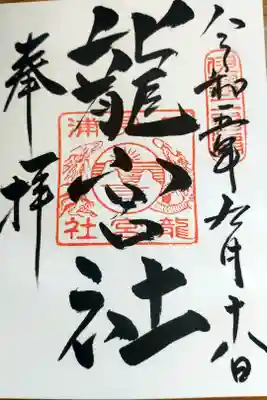 令和五年九月十八日
龍宮社
奉拝
浦
龍宮
社